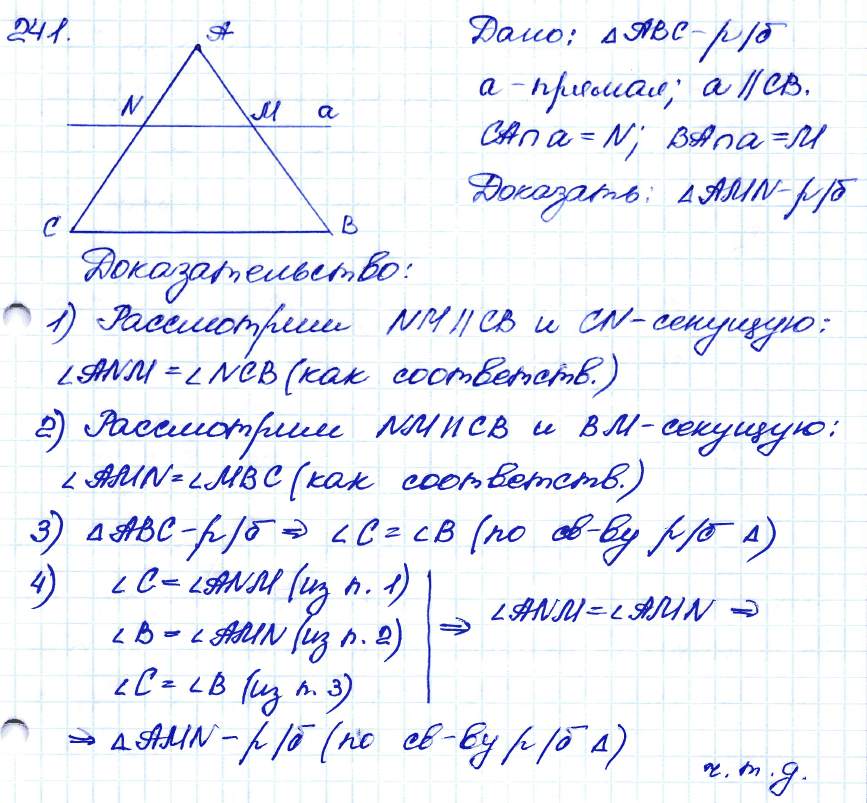 241.
A
N M a
C B
Дано: △ABC-р/б
a-прямая; a∥CB.
CA∩a=N; BA∩a=M
Доказать: △AMN-р/б
Доказательство:
1) Рассмотрим NM∥CB и CN-секущую:
∠ANM=∠NCB (как соответств.)
2) Рассмотрим NM∥CB и BM-секущую:
∠AMN=∠MBC (как соответств.)
3) △ABC-р/б ⇒ ∠C=∠B (по св-ву р/б △)
4) ∠C=∠ANM (из п. 1)
∠B=∠AMN (из п. 2)
∠C=∠B (из п. 3)
⇒ ∠ANM=∠AMN ⇒
⇒ △AMN-р/б (по св-ву р/б △)
ч.т.д.